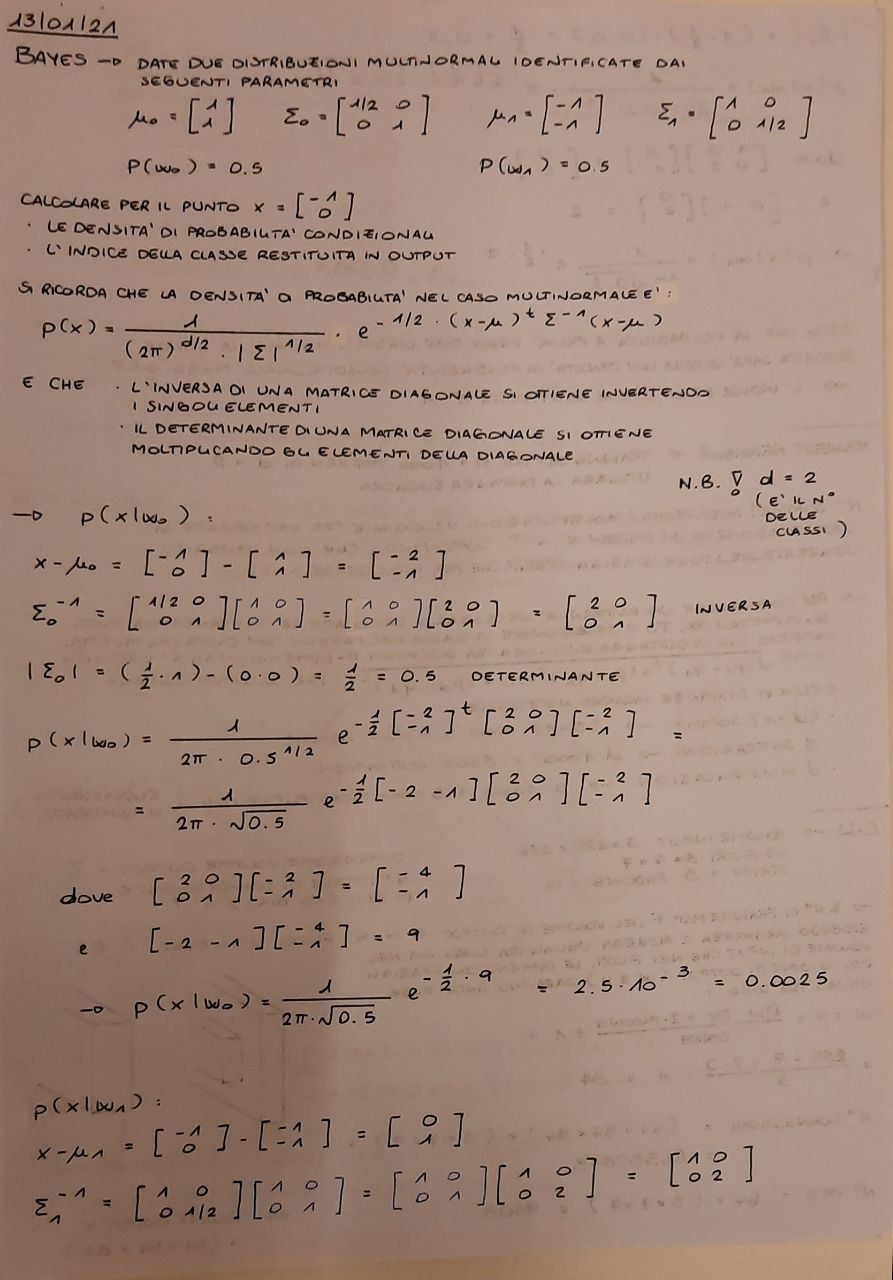 13/01/21
BAYES → DATE DUE DISTRIBUZIONI MULTINORMALI IDENTIFICATE DAI
SEGUENTI PARAMETRI
μ₀ = [1 1] Σ₀ = [1/2 0 0 1] μ₁ = [-1 -1] Σ₁ = [1 0 0 1/2]
P(ω₀) = 0.5 P(ω₁) = 0.5
CALCOLARE PER IL PUNTO X = [-1 0]
· LE DENSITA' DI PROBABILITA' CONDIZIONALI
· L'INDICE DELLA CLASSE RESTITUITA IN OUTPUT
SI RICORDA CHE LA DENSITA' DI PROBABILITA' NEL CASO MULTINORMALE E':
p(x) = 1 / ((2π)^(d/2) · |Σ|^(1/2)) · e^(-1/2 · (x-μ)^t Σ^-1 (x-μ))
E CHE · L'INVERSA DI UNA MATRICE DIAGONALE SI OTTIENE INVERTENDO
I SINGOLI ELEMENTI
· IL DETERMINANTE DI UNA MATRICE DIAGONALE SI OTTIENE
MOLTIPLICANDO GLI ELEMENTI DELLA DIAGONALE
N.B. ! d = 2
(E' IL N°
DELLE
CLASSI)
→ p(x|ω₀):
x-μ₀ = [-1 0] - [1 1] = [-2 -1]
Σ₀^-1 = [1/2 0 0 1][1 0 0 1] = [1 0 0 1][2 0 0 1] = [2 0 0 1] INVERSA
|Σ₀| = (1/2 · 1) - (0·0) = 1/2 = 0.5 DETERMINANTE
p(x|ω₀) = 1 / (2π · 0.5^(1/2)) e^(-1/2 [-2 -1]^t [2 0 0 1][-2 -1]) =
= 1 / (2π · √0.5) e^(-1/2 [-2 -1][2 0 0 1][-2 -1])
dove [2 0 0 1][-2 -1] = [-4 -1]
e [-2 -1][-4 -1] = 9
→ p(x|ω₀) = 1 / (2π·√0.5) e^(-1/2 · 9) = 2.5·10^-3 = 0.0025
p(x|ω₁):
x-μ₁ = [-1 0] - [-1 -1] = [0 1]
Σ₁^-1 = [1 0 0 1/2][1 0 0 1] = [1 0 0 1][1 0 0 2] = [1 0 0 2]